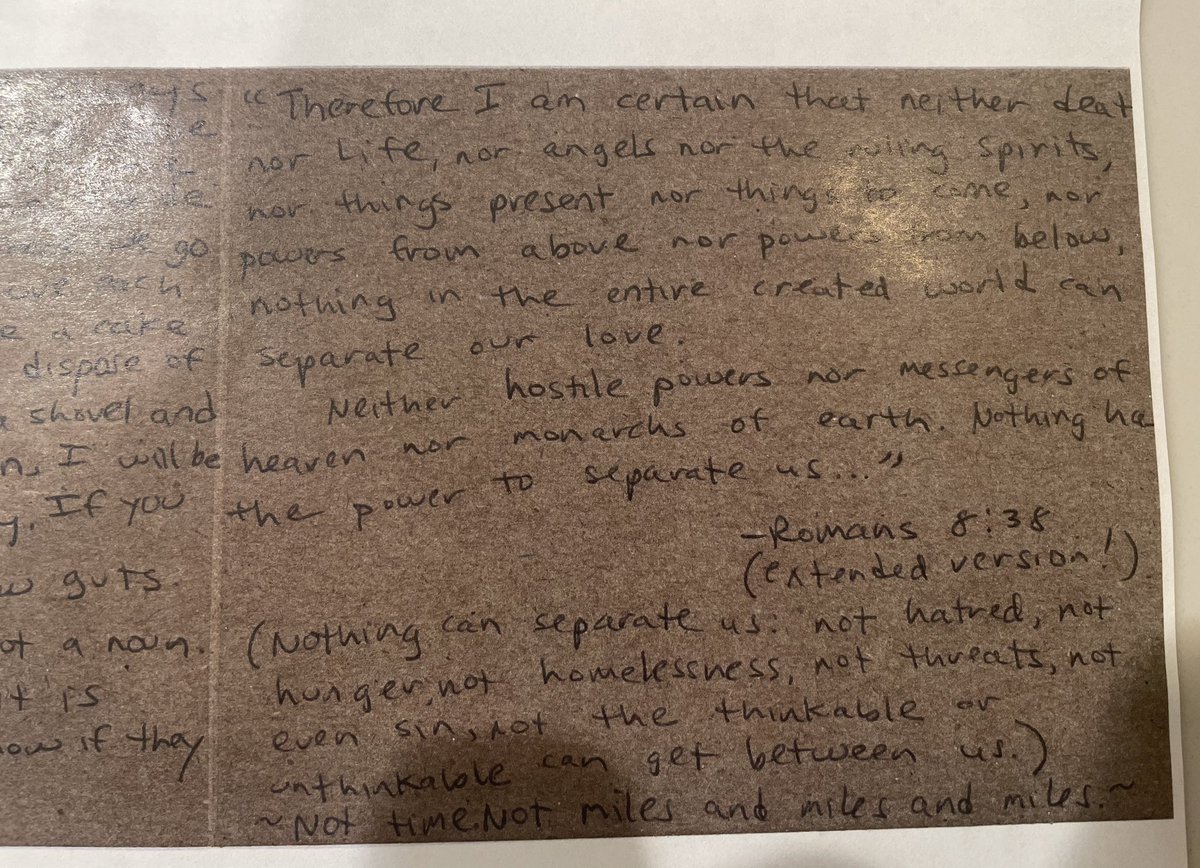 ys
e
go
each
e a cake
dispose of
a shovel and
n, I will be
y. If you
w guts.
ot a noun.
it is
ow if they
"Therefore I am certain that neither deat
nor Life, nor angels nor the ruling Spirits,
nor things present nor things to come, nor
powers from above nor powers from below,
nothing in the entire created world can
separate our love.
Neither hostile powers nor messengers of
heaven nor monarchs of earth. Nothing ha
the power to separate us..."
-Romans 8:38
(extended version!)
(Nothing can separate us: not hatred, not
hunger, not homelessness, not threats, not
even sin, not the thinkable or
unthinkable can get between us.)
~Not time. Not miles and miles and miles.~